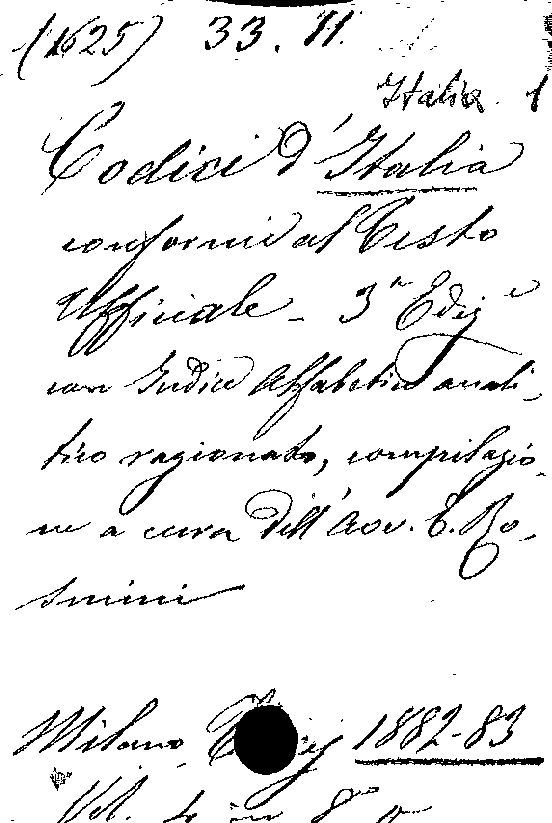 (1625) 33. 11.
Italia. 1
Codici d'Italia
conformi al Testo
Ufficiale - 3ª Ediz.e
con Indice Alfabetico anali-
tico ragionato, compilazio-
ne a cura dell'Avv. E. Ro-
smini
Milano 1882-83
Vol. 4 in 8º